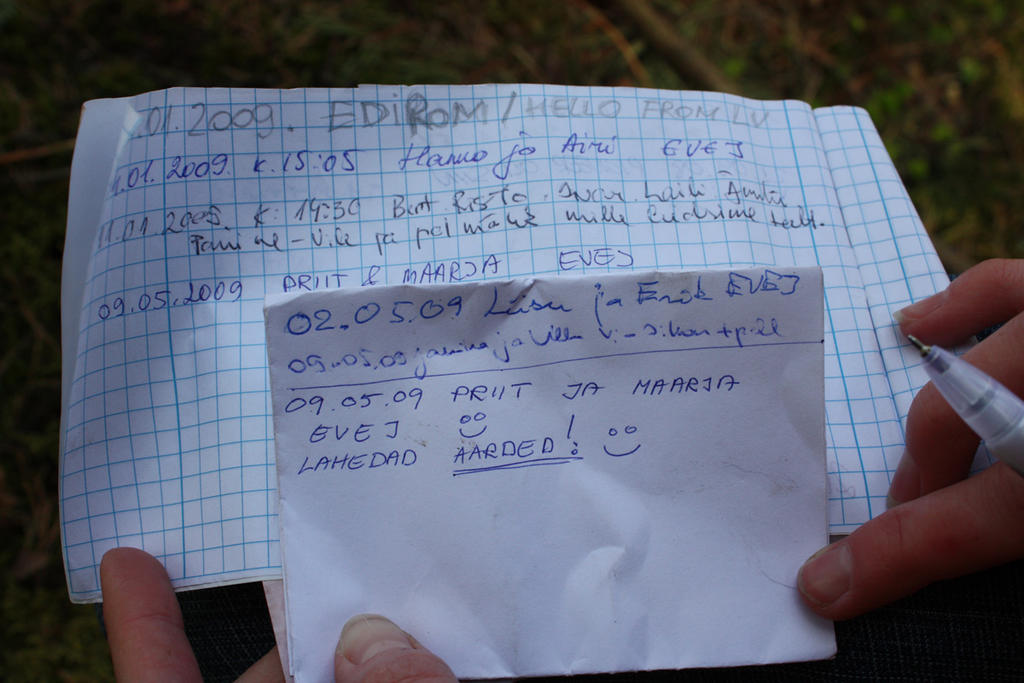 .01.2009. EDIROM / HELLO FROM LV
1.01.2009. K. 15:05 Hanno ja Airi EVEJ
11.01.2009. K: 14:30 Risto
ja pol mille
09.05.2009 PRIIT & MAARJA EVEJ
02.05.09 Liisu ja Erik EVEJ
09.05.09 ja Villu
09.05.09 PRIIT JA MAARJA
EVEJ
LAHEDAD AARDED!